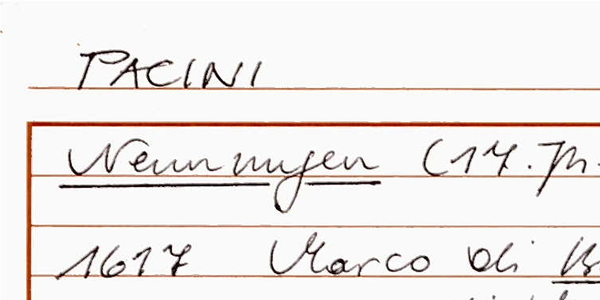 PACINI
Nennungen (17. Jh.
1617 Marco di